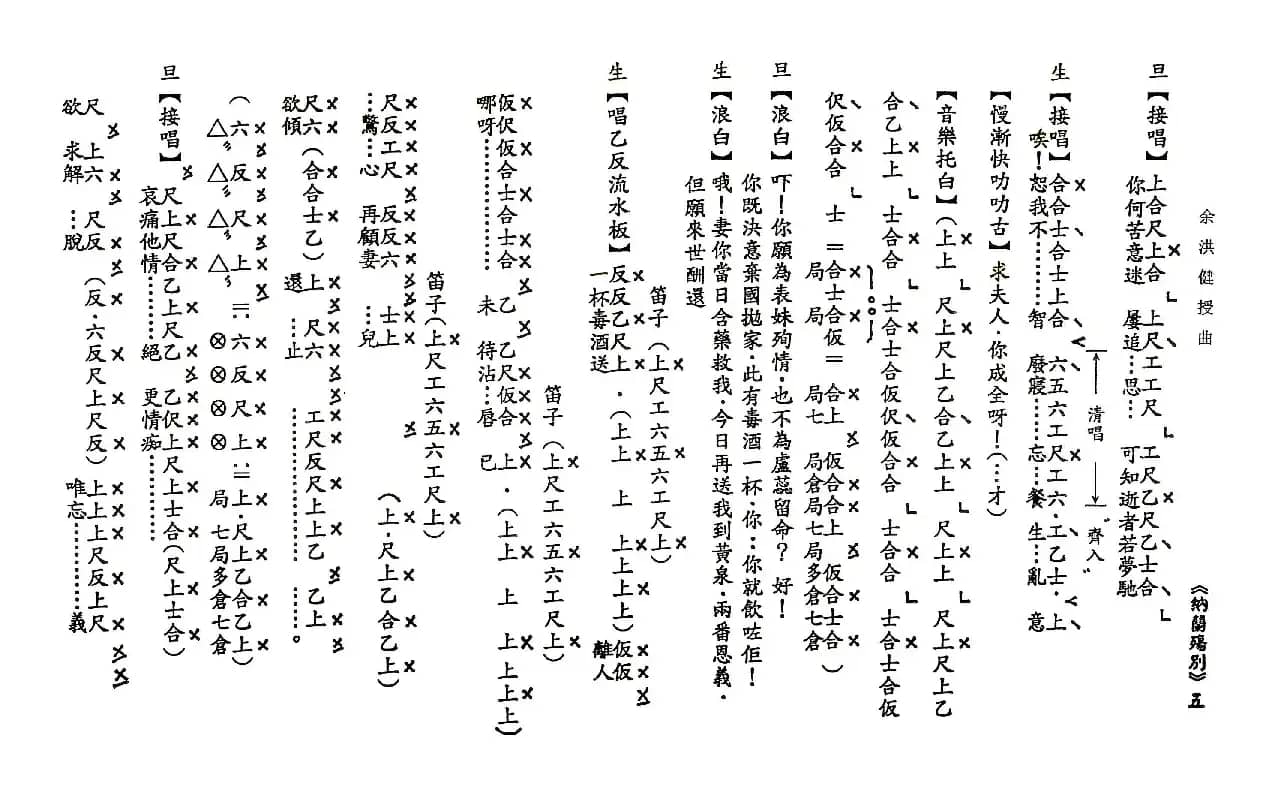 余洪健授曲
《納蘭殤別》五
旦【接唱】上合尺上合 上尺工工尺 工尺乙尺乙士合
你何苦意迷 屢追…思… 可知逝者若夢馳
清唱 “齊入”
生【接唱】合合士合士上合 六五六工尺工六·工乙士·上
唉！恕我不………智 廢寢……忘…餐 生…亂 意
【慢漸快叻叻古】求夫人·你成全呀！(…才)
【音樂托白】(上上 尺上尺上乙合乙上上 尺上上 尺上尺上乙
合乙上上 士合合 士合士合仮伬仮合合 士合合 士合士合仮
伬仮合合 士＝合士合仮＝ 合上 仮合合上 仮合士合)
局 局 局七 局倉局七局多倉七倉
旦【浪白】吓！你願為表妹殉情·也不為盧蕊留命？ 好！
你既決意棄國拋家·此有毒酒一杯·你‥你就飲咗佢！
生【浪白】哦！妻你當日含藥救我·今日再送我到黃泉·兩番恩義·
但願來世酬還
笛子(上尺工六五六工尺上)
生【唱乙反流水板】反反乙尺上·(上上 上 上上上上)仮仮
一杯毒酒送 離人
笛子(上尺工六五六工尺上)
仮伬仮合士合士合 乙 乙尺仮合 上·(上上 上 上上上)
哪呀……………… 未 待沾…唇 已
笛子(上尺工六五六工尺上)
尺反工尺 反反六 士上 (上·尺上乙合乙上)
…驚…心 再顧妻 兒
尺六(合合士乙)上 尺六 工尺反尺上上乙 乙上
欲傾 還 …止 …………… ……。
(六·反·尺·上＝‥六反尺上‥＝上·尺上乙合乙上)
△〃△〃△〃△〃 ⊗⊗⊗⊗ 局 七局多倉七倉
旦【接唱】尺上尺合乙上尺乙 乙伬上尺上士合(尺上士合)
哀痛他情………絕 更情痴…………
尺 上六 尺反(反·六反尺上尺反)上上上尺反上尺
欲 求解 …脫 唯忘……………義